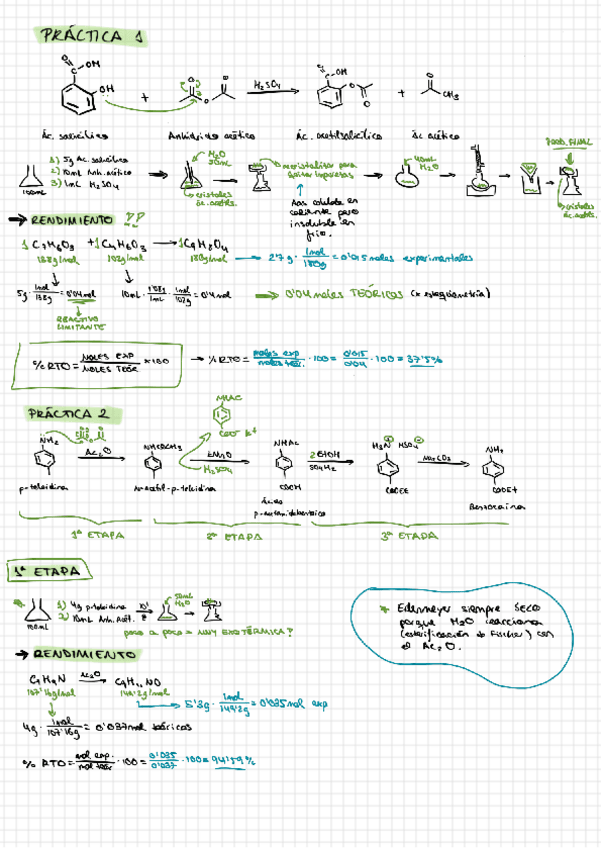 PRÁCTICA 1
H₂SO₄
+
+
CH₃
Ác. salicílico Anhídrido acético Ác. acetilsalicílico ác. acético
1) 5g Ác. salicílico
2) 10mL Anh. Acético
3) 1mL H₂SO₄
100mL
H₂O
50mL
cristales
ác. acetils.
recristalizar para
quitar impurezas
Aas soluble en
caliente pero
insoluble en
frío.
40mL
H₂O
PROD. FINAL
cristales
ác. acetils.
→ RENDIMIENTO
1 C₇H₆O₃ + 1 C₄H₆O₃ → 1 C₉H₈O₄
138g/mol 102g/mol 180g/mol → 2'7g · 1mol/180g = 0'015 moles experimentales
5g · 1mol/138g = 0'04 mol 10mL · 1'08g/1mL · 1mol/102g = 0'1 mol ⇒ 0'04 moles TEÓRICOS (x estequiometría)
REACTIVO
LIMITANTE
% RTO = MOLES EXP/MOLES TEÓR × 100 → % RTO = moles exp/moles teór. · 100 = 0'015/0'04 · 100 = 37'5%
PRÁCTICA 2
NHAc
COO⁻ K⁺
NH₂ Ac₂O NHCOCH₃ KMnO₄ H₂SO₄ NHAc 2EtOH SO₄H₂ H₃N⁺ HSO₄⁻ Na₂CO₃ NH₂
CH₃ CH₃ COOH COOEt COOEt
p-toluidina N-acetil-p-toluidina Ácido p-acetamidobenzoico Benzocaína
1ª ETAPA 2ª ETAPA 3ª ETAPA
1ª ETAPA
1) 4g p-toluidina
2) 10mL Anh. Acét.
100mL
50mL
H₂O
poco a poco = MUY EXOTÉRMICA?
* Erlenmeyer siempre seco
porque H₂O reacciona
(esterificación de Fischer) con
el Ac₂O.
→ RENDIMIENTO
C₇H₉N Ac₂O → C₉H₁₁NO
107'16g/mol 149'2g/mol
→ 5'3g · 1mol/149'2g = 0'035 mol exp
4g · 1mol/107'16g = 0'037 mol teóricos
% RTO = mol exp./mol teór · 100 = 0'035/0'037 · 100 = 94'59%